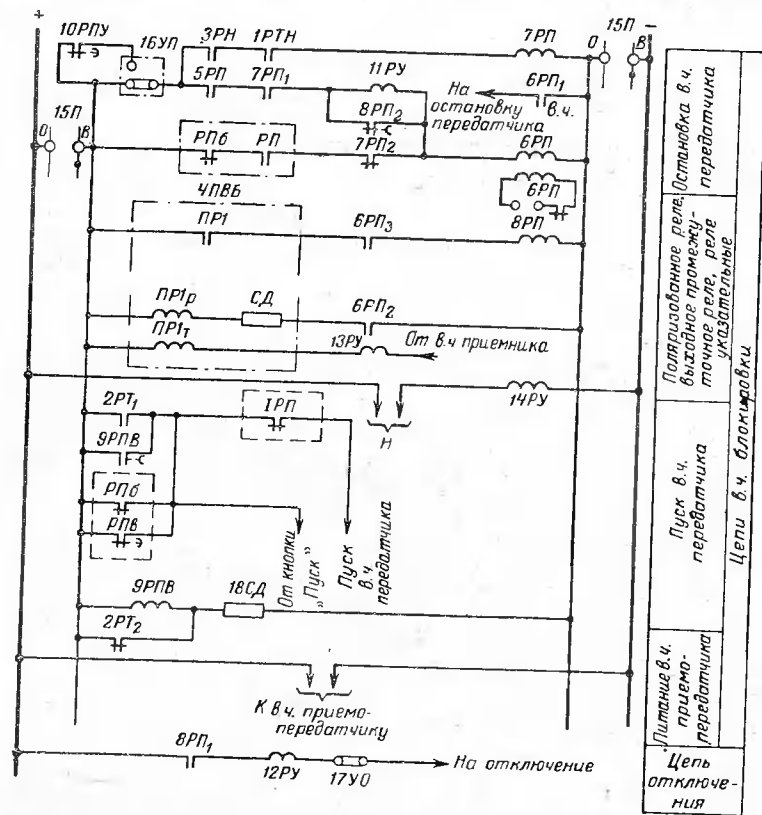 +
10РПУ
Э
16УП
3РН
1РТН
7РП
15П
–
О
В
5РП
7РП₁
11РУ
На
остановку
передатчика
6РП₁
в.ч.
8РП₂
С
15П
О
В
РПб
РП
7РП₂
6РП
6РП
4ПВБ
ПР1
6РП₃
8РП
ПР1р
СД
6РП₂
ПР1т
13РУ
От в.ч приемника
14РУ
Н
2РТ₁
1РП
9РПВ
С
РПб
РПв
Э
От кнопки
„Пуск"
Пуск
в.ч.
передатчика
9РПВ
18СД
2РТ₂
К в ч. приемо-
передатчику
8РП₁
12РУ
17УО
На отключение
Остановка в.ч.
передатчика
Поляризованное реле,
выходное промежу-
точное реле, реле
указательные
Пуск в.ч.
передатчика
Питание в.ч.
приемо-
передатчика
Цепи в.ч. блокировки
Цепь
отключе-
ния